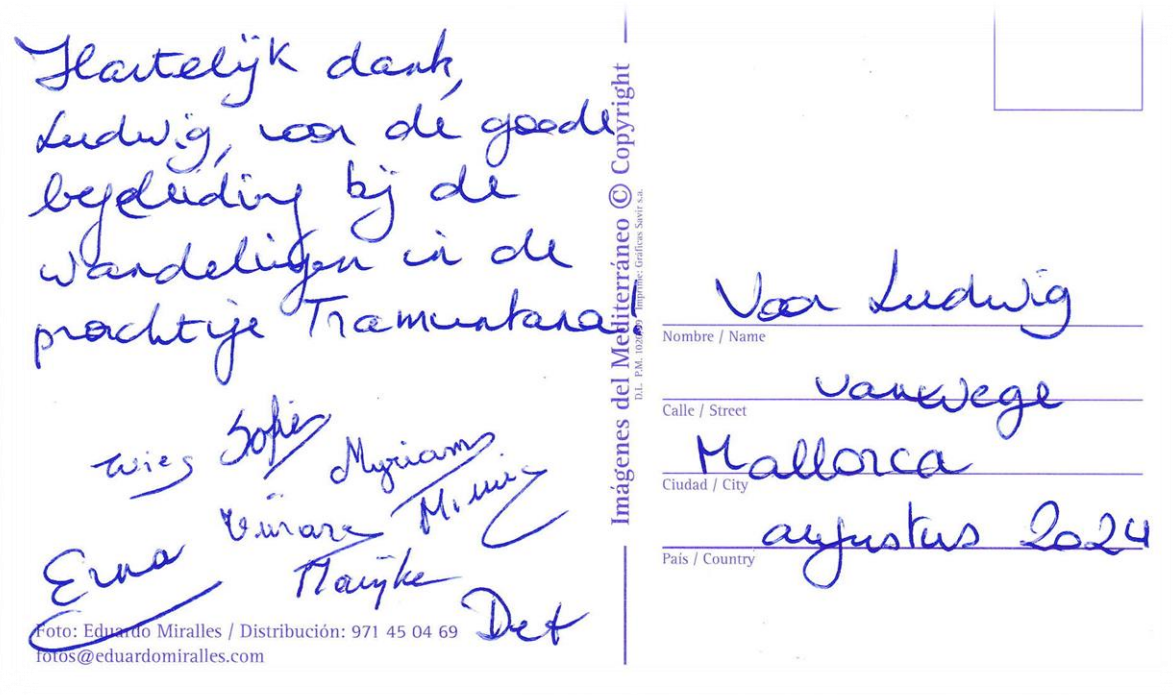 Hartelijk dank,
Ludwig, voor de goede
begeleiding bij de
wandelingen in de
prachtige Tramuntana!
Wies Sofie Myriam
Mimi
Erna Marijke
Det
Foto: Eduardo Miralles / Distribución: 971 45 04 69
fotos@eduardomiralles.com
Imágenes del Mediterráneo © Copyright
Imprime: Gráficas Savir s.a.
Voor Ludwig
Nombre / Name
vanwege
Calle / Street
Mallorca
Ciudad / City
augustus 2024
País / Country